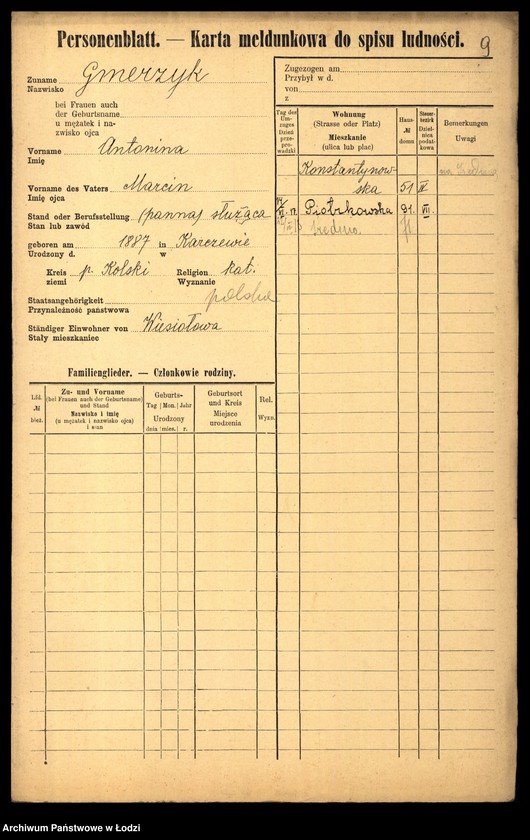 Personenblatt. — Karta meldunkowa do spisu ludności.
9
Zuname Gmerzyk
Nazwisko
bei Frauen auch
der Geburtsname
u mężatek i na-
zwisko ojca
Vorname Antonina
Imię
Vorname des Vaters Marcin
Imię ojca
Stand oder Berufsstellung (panna) służąca
Stan lub zawód
geboren am 1887 in Karczewie
Urodzony d. w
Kreis p. Kolski Religion kat.
ziemi Wyznanie
Staatsangehörigkeit polska
Przynależność państwowa
Ständiger Einwohner von Wiesiołowa
Stały mieszkaniec
Familienglieder. — Członkowie rodziny.
Lfd.
№
bież.
Zu- und Vorname
(bei Frauen auch der Geburtsname)
und Stand
Nazwisko i imię
(u mężatek i nazwisko ojca)
i stan
Geburts-
Tag Mon. Jahr
Urodzony
dnia mies. r.
Geburtsort
und Kreis
Miejsce
urodzenia
Rel.
Wyzn.
Zugezogen am
Przybył w d.
von
z
Tag des
Um-
zuges
Dzień
prze-
prowadzki
Wohnung
(Strasse oder Platz)
Mieszkanie
(ulica lub plac)
Haus-
№
domu
Steuer-
bezirk
Dziel-
nica
podat-
kowa
Bemerkungen
Uwagi
Konstantynow-
ska 51 IV
Piotrkowska 91. VII.
Archiwum Państwowe w Łodzi